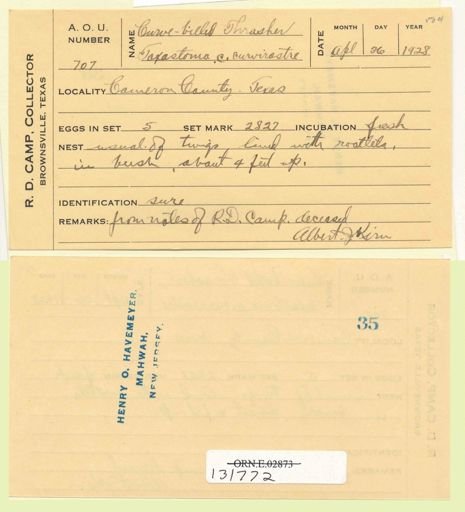 R. D. CAMP, COLLECTOR
BROWNSVILLE, TEXAS
A. O. U.
NUMBER
707
NAME
Curve-billed Thrasher
Toxastoma, c. curvirostre
DATE
MONTH DAY YEAR
Apl 26 1928
LOCALITY Cameron County - Texas
EGGS IN SET 5 SET MARK 2827 INCUBATION fresh
NEST usual. of twigs, lined with rootlets,
in bush, about 4 feet up.
IDENTIFICATION sure
REMARKS: from notes of R.D. Camp. deceased
Albert J Kirn
HENRY O. HAVEMEYER.
MAHWAH,
NEW JERSEY.
35
ORN.E.02873
131772